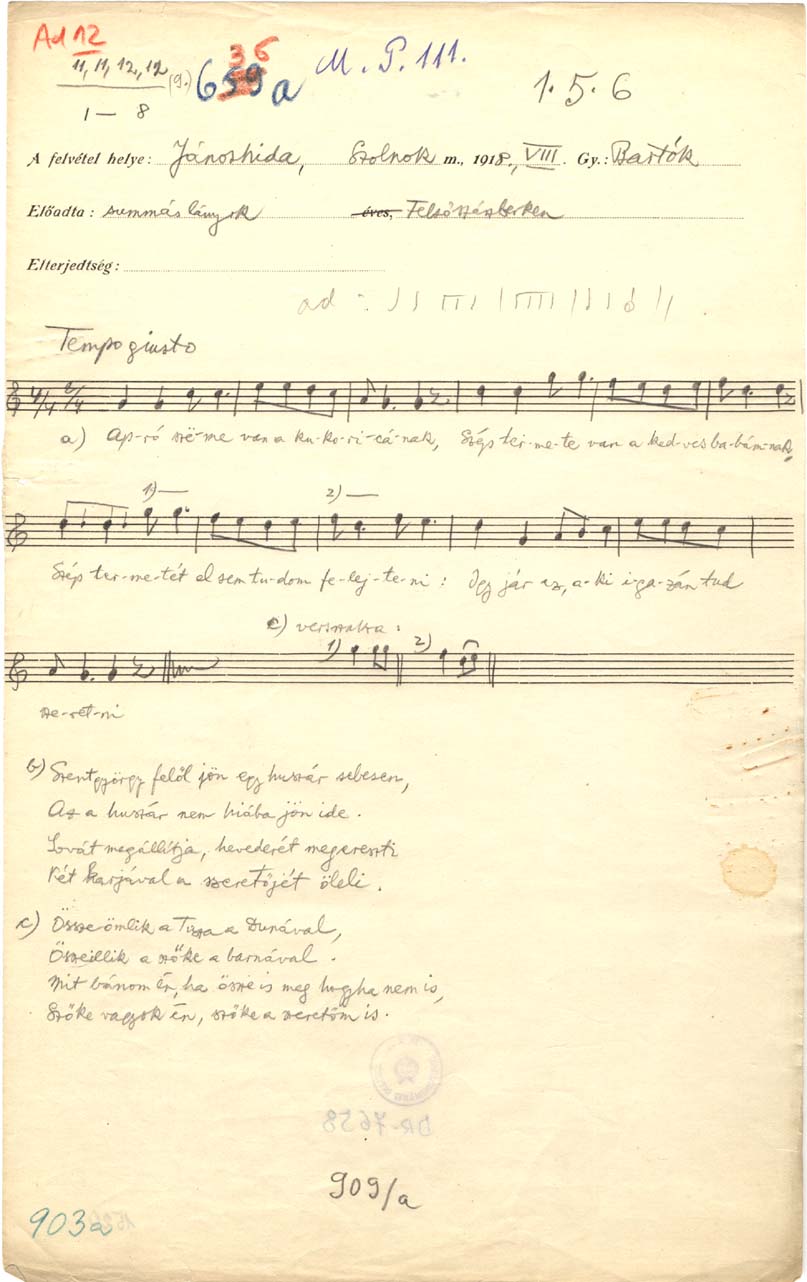 Ad 12
11, 11, 12, 12 (9.) 659a 36 M. P. 111. 1. 5. 6
1 — 8
A felvétel helye: Jánoshida, Szolnok m., 1918., VIII. Gy.: Bartók
Előadta: summáslányok éves, Felsőszászberken
Elterjedtség:
ad
Tempo giusto
4/4 2/4
a) Ap-ró sze-me van a ku-ko-ri-cá-nak, Szép ter-me-te van a ked-ves ba-bám-nak,
1) 2)
Szép ter-me-tét el sem tu-dom fe-lej-te-ni: Igy jár az, a-ki i-ga-zán tud
c) versszakra:
1) 2)
sze-ret-ni
b) Szentgyörgy felől jön egy huszár sebesen,
Az a huszár nem hiába jön ide.
Lovát megállítja, hevederét megereszti
Két karjával a szeretőjét öleli.
c) Összeömlik a Tisza a Dunával,
Összeillik a szőke a barnával.
Mit bánom én, ha össze is meg hogyha nem is,
Szőke vagyok én, szőke a szeretőm is.
BR-7658
909/a
903a